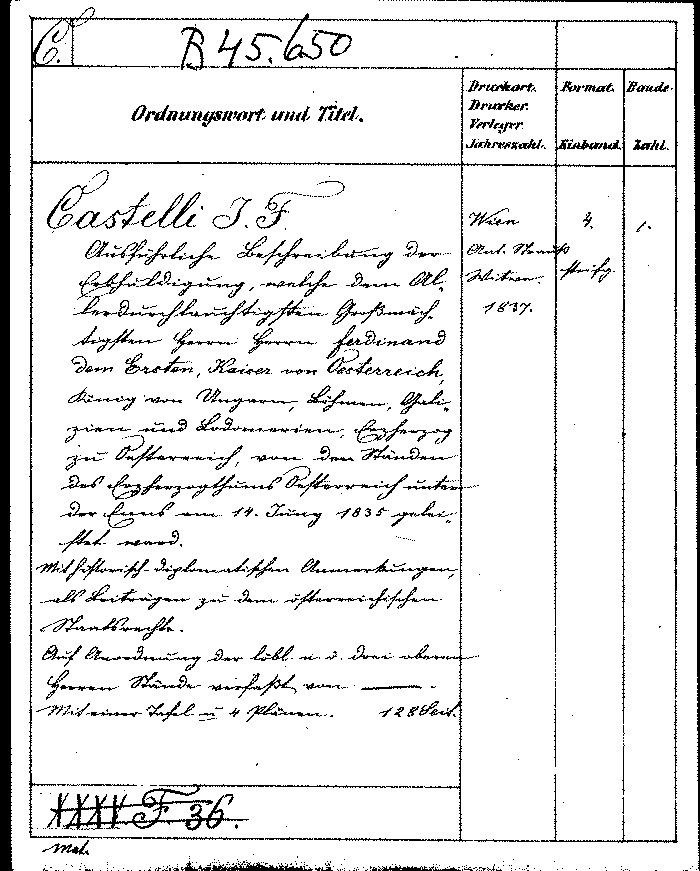 C.
B 45.650
Ordnungswort und Titel.
Druckort.
Drucker.
Verleger
Jahreszahl.
Format.
Einband.
Bände-
Zahl.
Castelli J. F.
Ausführliche Beschreibung der
Erbhuldigung, welche dem Al-
lerdurchlauchtigsten Großmäch-
tigsten Herrn Herrn Ferdinand
dem Ersten, Kaiser von Oesterreich,
König von Ungarn, Böhmen, Gali-
zien und Lodomerien, Erzherzog
zu Oesterreich, von den Ständen
des Erzherzogthums Oesterreich unter
der Enns am 14. Juny 1835 gelei-
stet ward.
Mit historisch-diplomatischen Anmerkungen,
als Beiträgen zu dem österreichischen
Staatsrechte.
Auf Anordnung der löbl. n. ö. drei oberen
Herren Stände verfaßt von —.
Mit einer Tafel u 4 Plänen. 128 Seit.
Wien
Ant. Strauß
Witwe.
1837.
4.
steifg.
1.
XXXV F. 36.